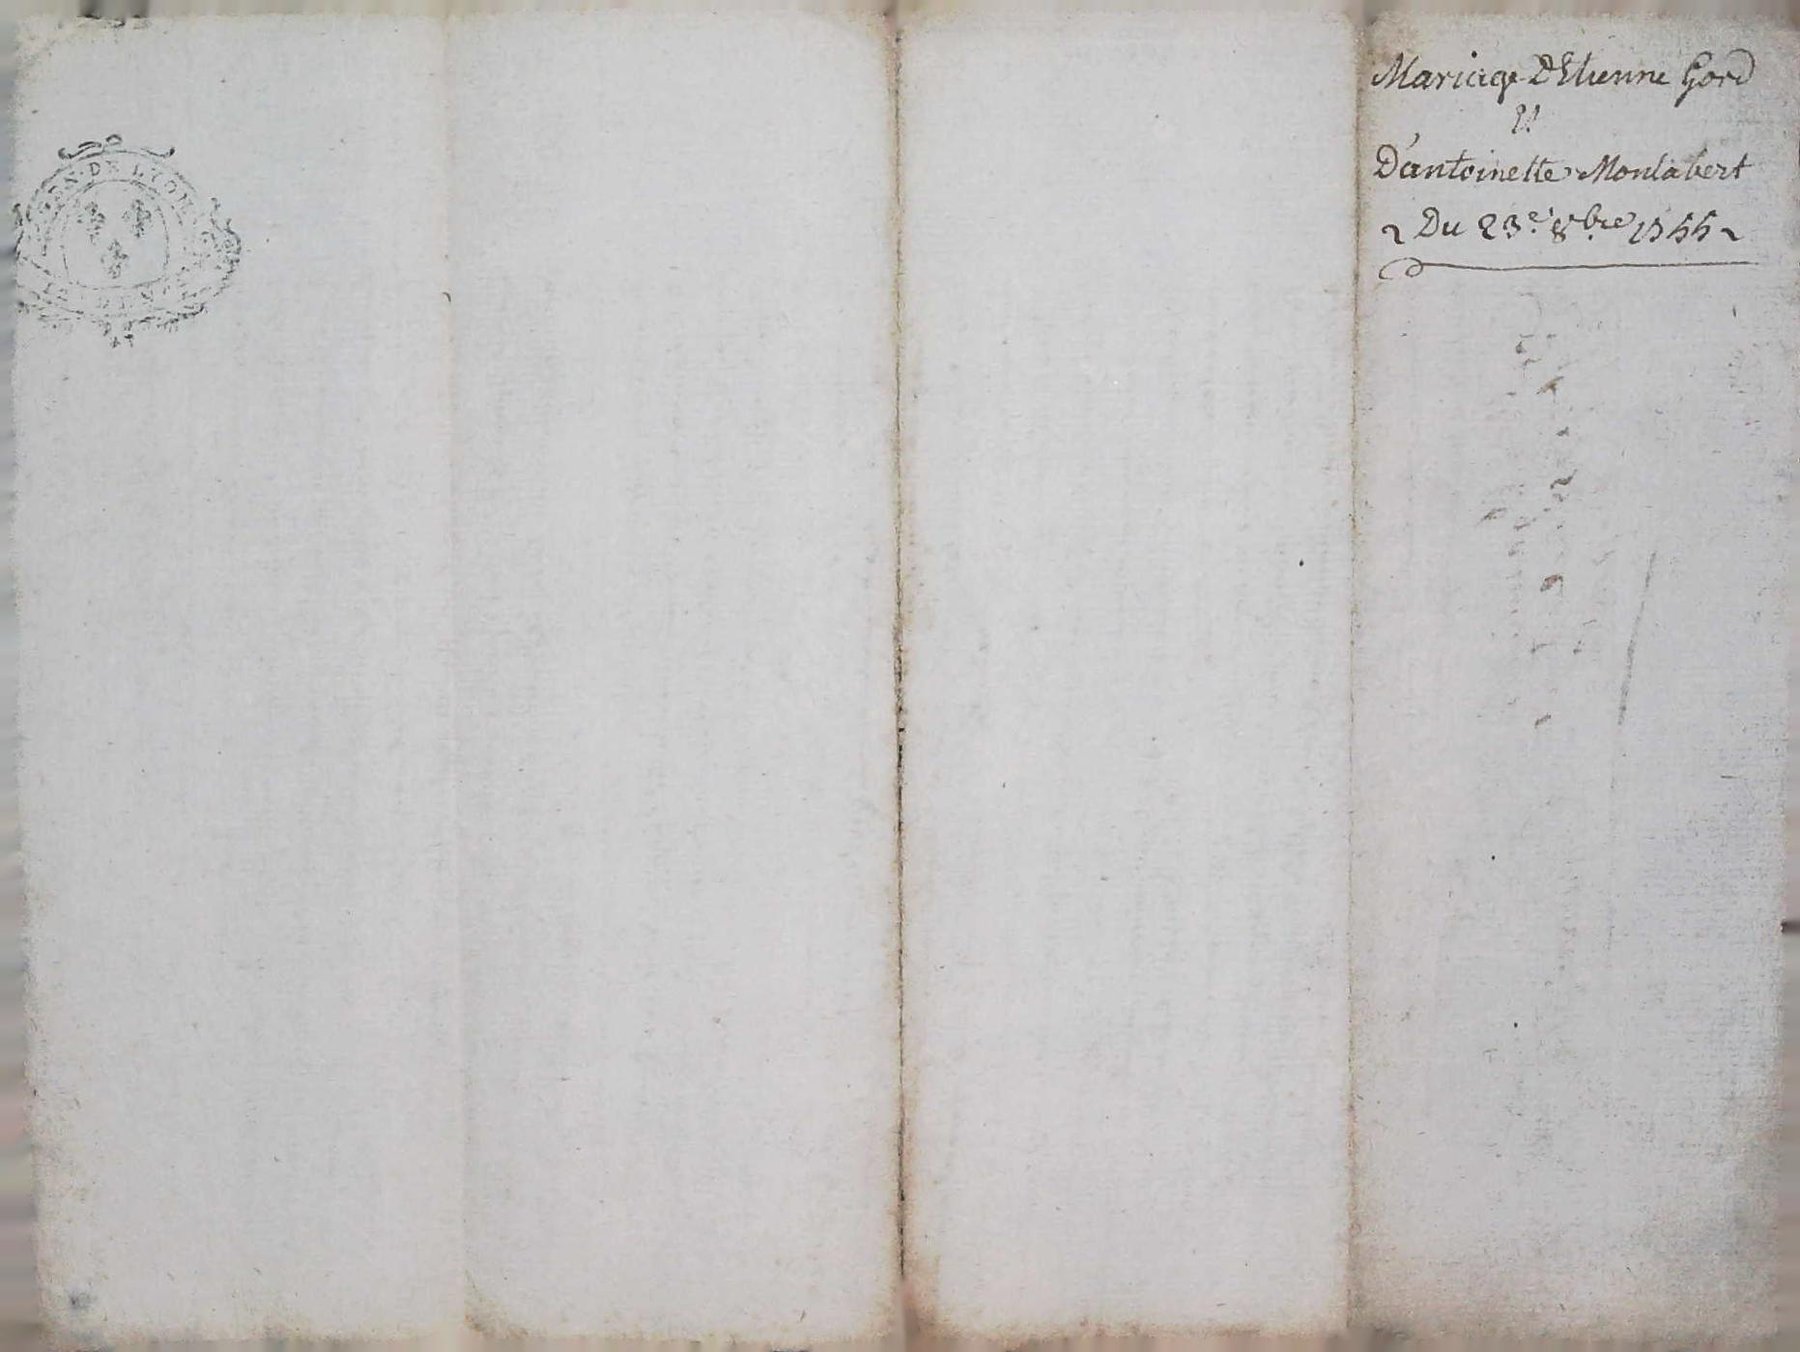 DE LYON
Mariage D'Etienne Gord
Et
D'antoinette Montabert
Du 23e 8bre 1766